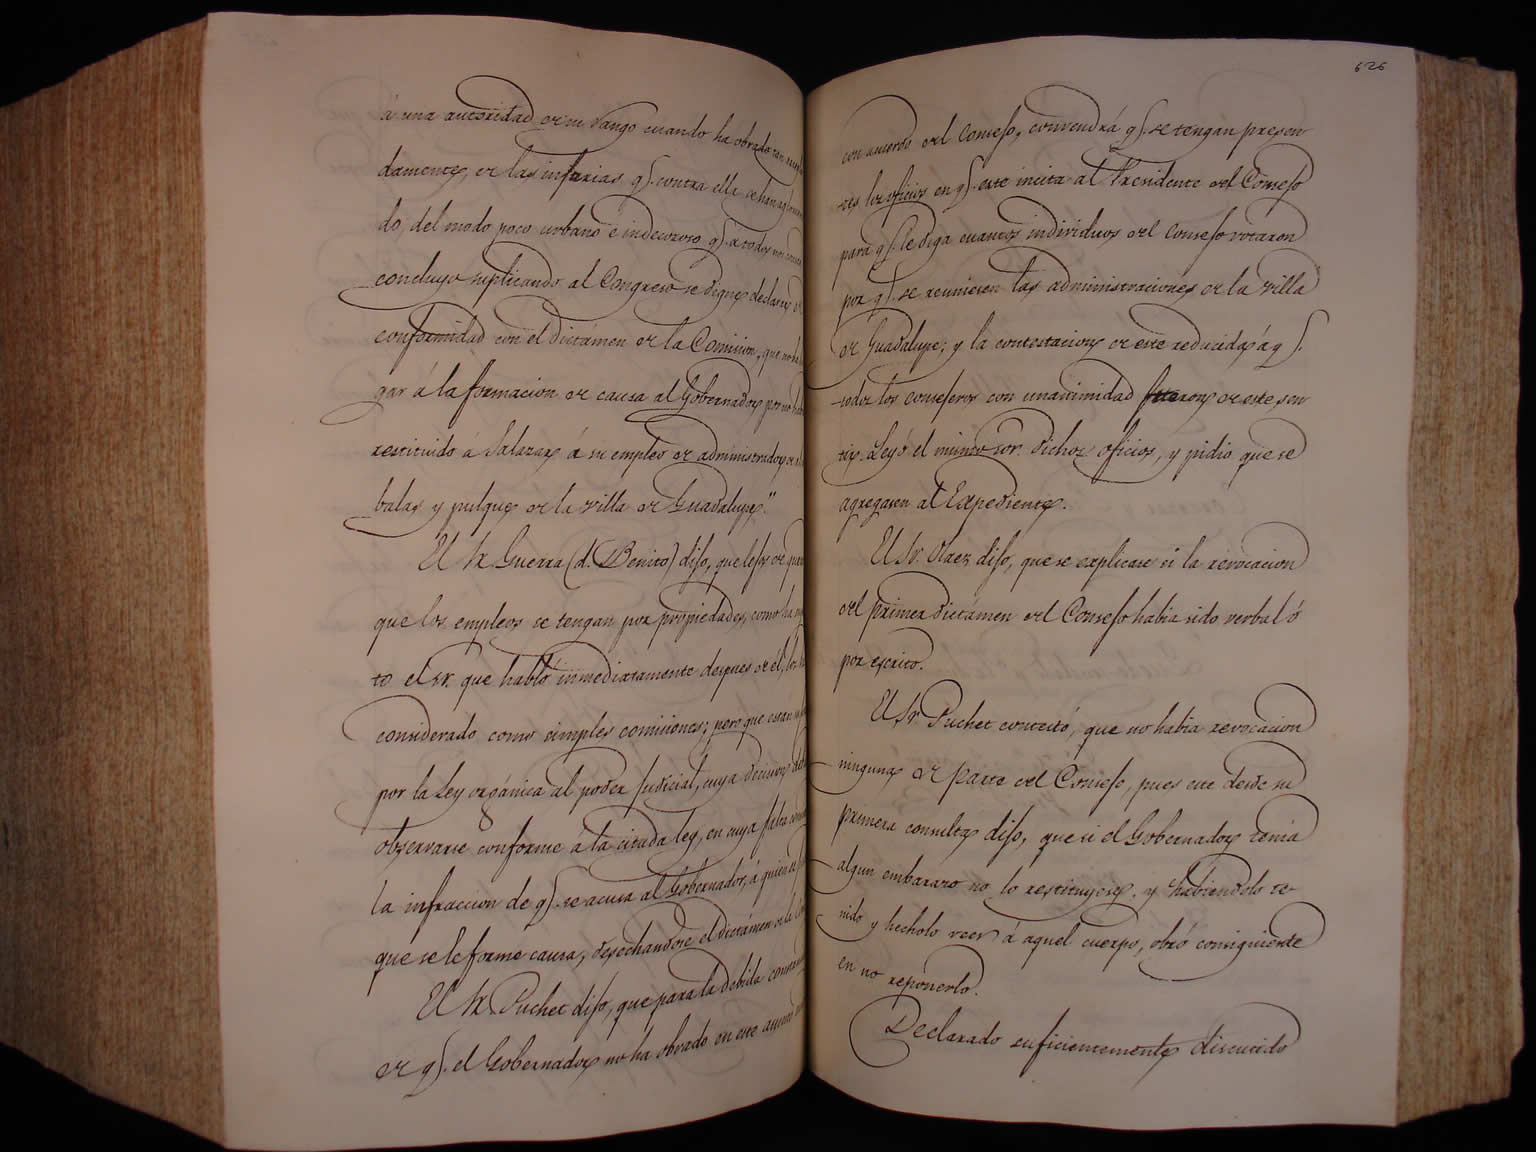 á una autoridad de su rango cuando ha obrado tan
damente, de las injurias q. contra ella se han
do, del modo poco urbano é indecoroso q. á todos nos
concluyo suplicando al Congreso se digne declarar de
conformidad con el dictámen de la Comision, que no ha
gar á la formacion de causa al Gobernador por no
restituido á Salazar á su empleo de administrador de
balas y pulques de la villa de Guadalupe."
El Sr. Guerra (d. Benito) dijo, que lejos de
que los empleos se tengan por propiedades, como ha
to el Sr. que habló inmediatamente despues de él, los
considerado como simples comisiones; pero que estan
por la Ley orgánica al poder judicial, cuya decision
observarse conforme á la citada ley, en cuya falta
la infraccion de q. se acusa al Gobernador, á quien
que se le forme causa, desechandose el dictámen de la
El Sr. Puchet dijo, que para la debida
de q. el Gobernador no ha obrado en este asunto
626
con acuerdo del Consejo, convendrá q. se tengan presen
tes los oficios en q. este incita al Presidente del Consejo
para q. le diga cuantos individuos del Consejo votaron
por q. se reuniesen las administraciones de la villa
de Guadalupe; y la contestacion de este reducida á q.
todos los consejeros con unanimidad fueron de este sen
tir. Leyó el mismo sor. dichos oficios, y pidio que se
agregasen al Expediente.
El Sr. Olaez dijo, que se explicase si la revocacion
del primer dictámen del Consejo habia sido verbal ó
por escrito.
El Sr. Puchet contestó, que no habia revocacion
ninguna de parte del Consejo, pues este desde su
primera consulta dijo, que si el Gobernador tenia
algun embarazo no lo restituyese, y habiendolo te-
nido y hecholo veer á aquel cuerpo, obró consiguiente
en no reponerlo.
Declarado suficientemente discutido